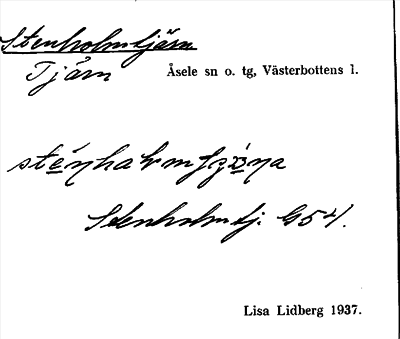 Stenholmtjärn
Tjärn
Åsele sn o. tg, Västerbottens l.
Stenholmtj. G54.
Lisa Lidberg 1937.